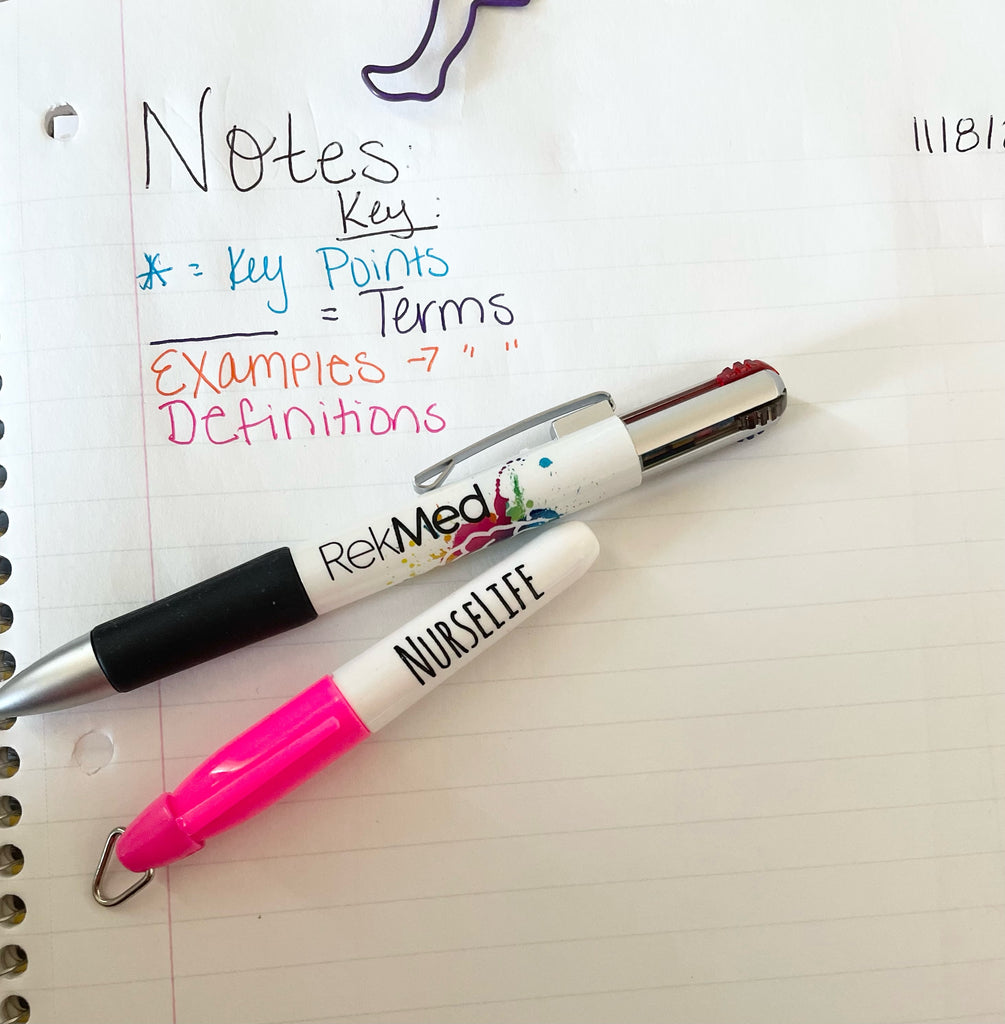 Notes:
11/8/2
Key:
* = Key Points
____ = Terms
Examples → " "
Definitions
RekMed
NURSELIFE